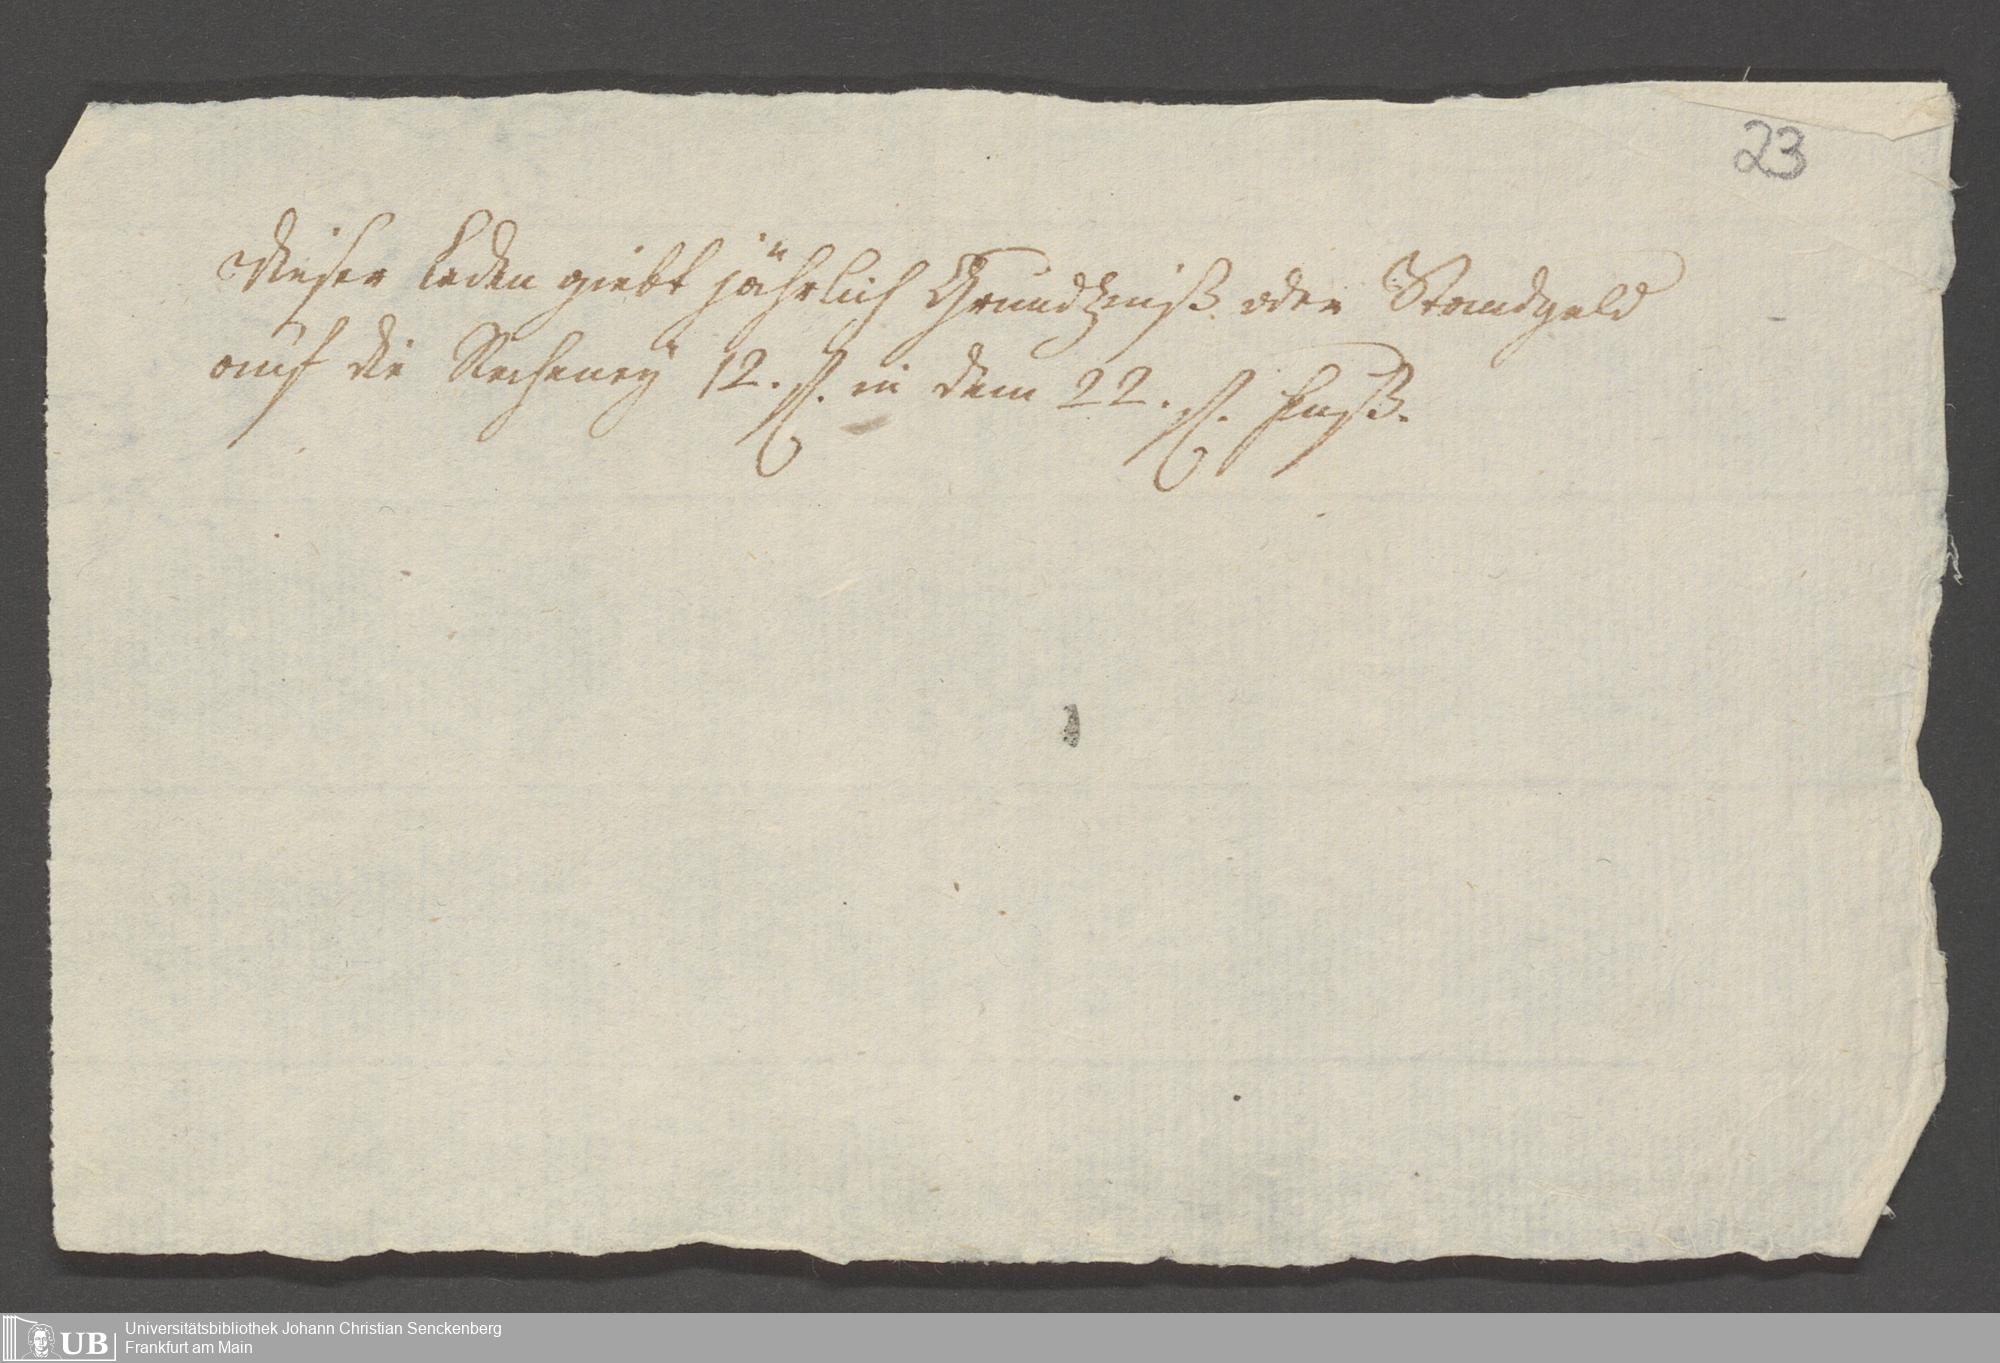 23
Dieser Laden giebt jährlich Grundzinß oder Standgeld
auf die Recheney 12. fl. in dem 22. fl. Fuß.
UB
Universitätsbibliothek Johann Christian Senckenberg
Frankfurt am Main